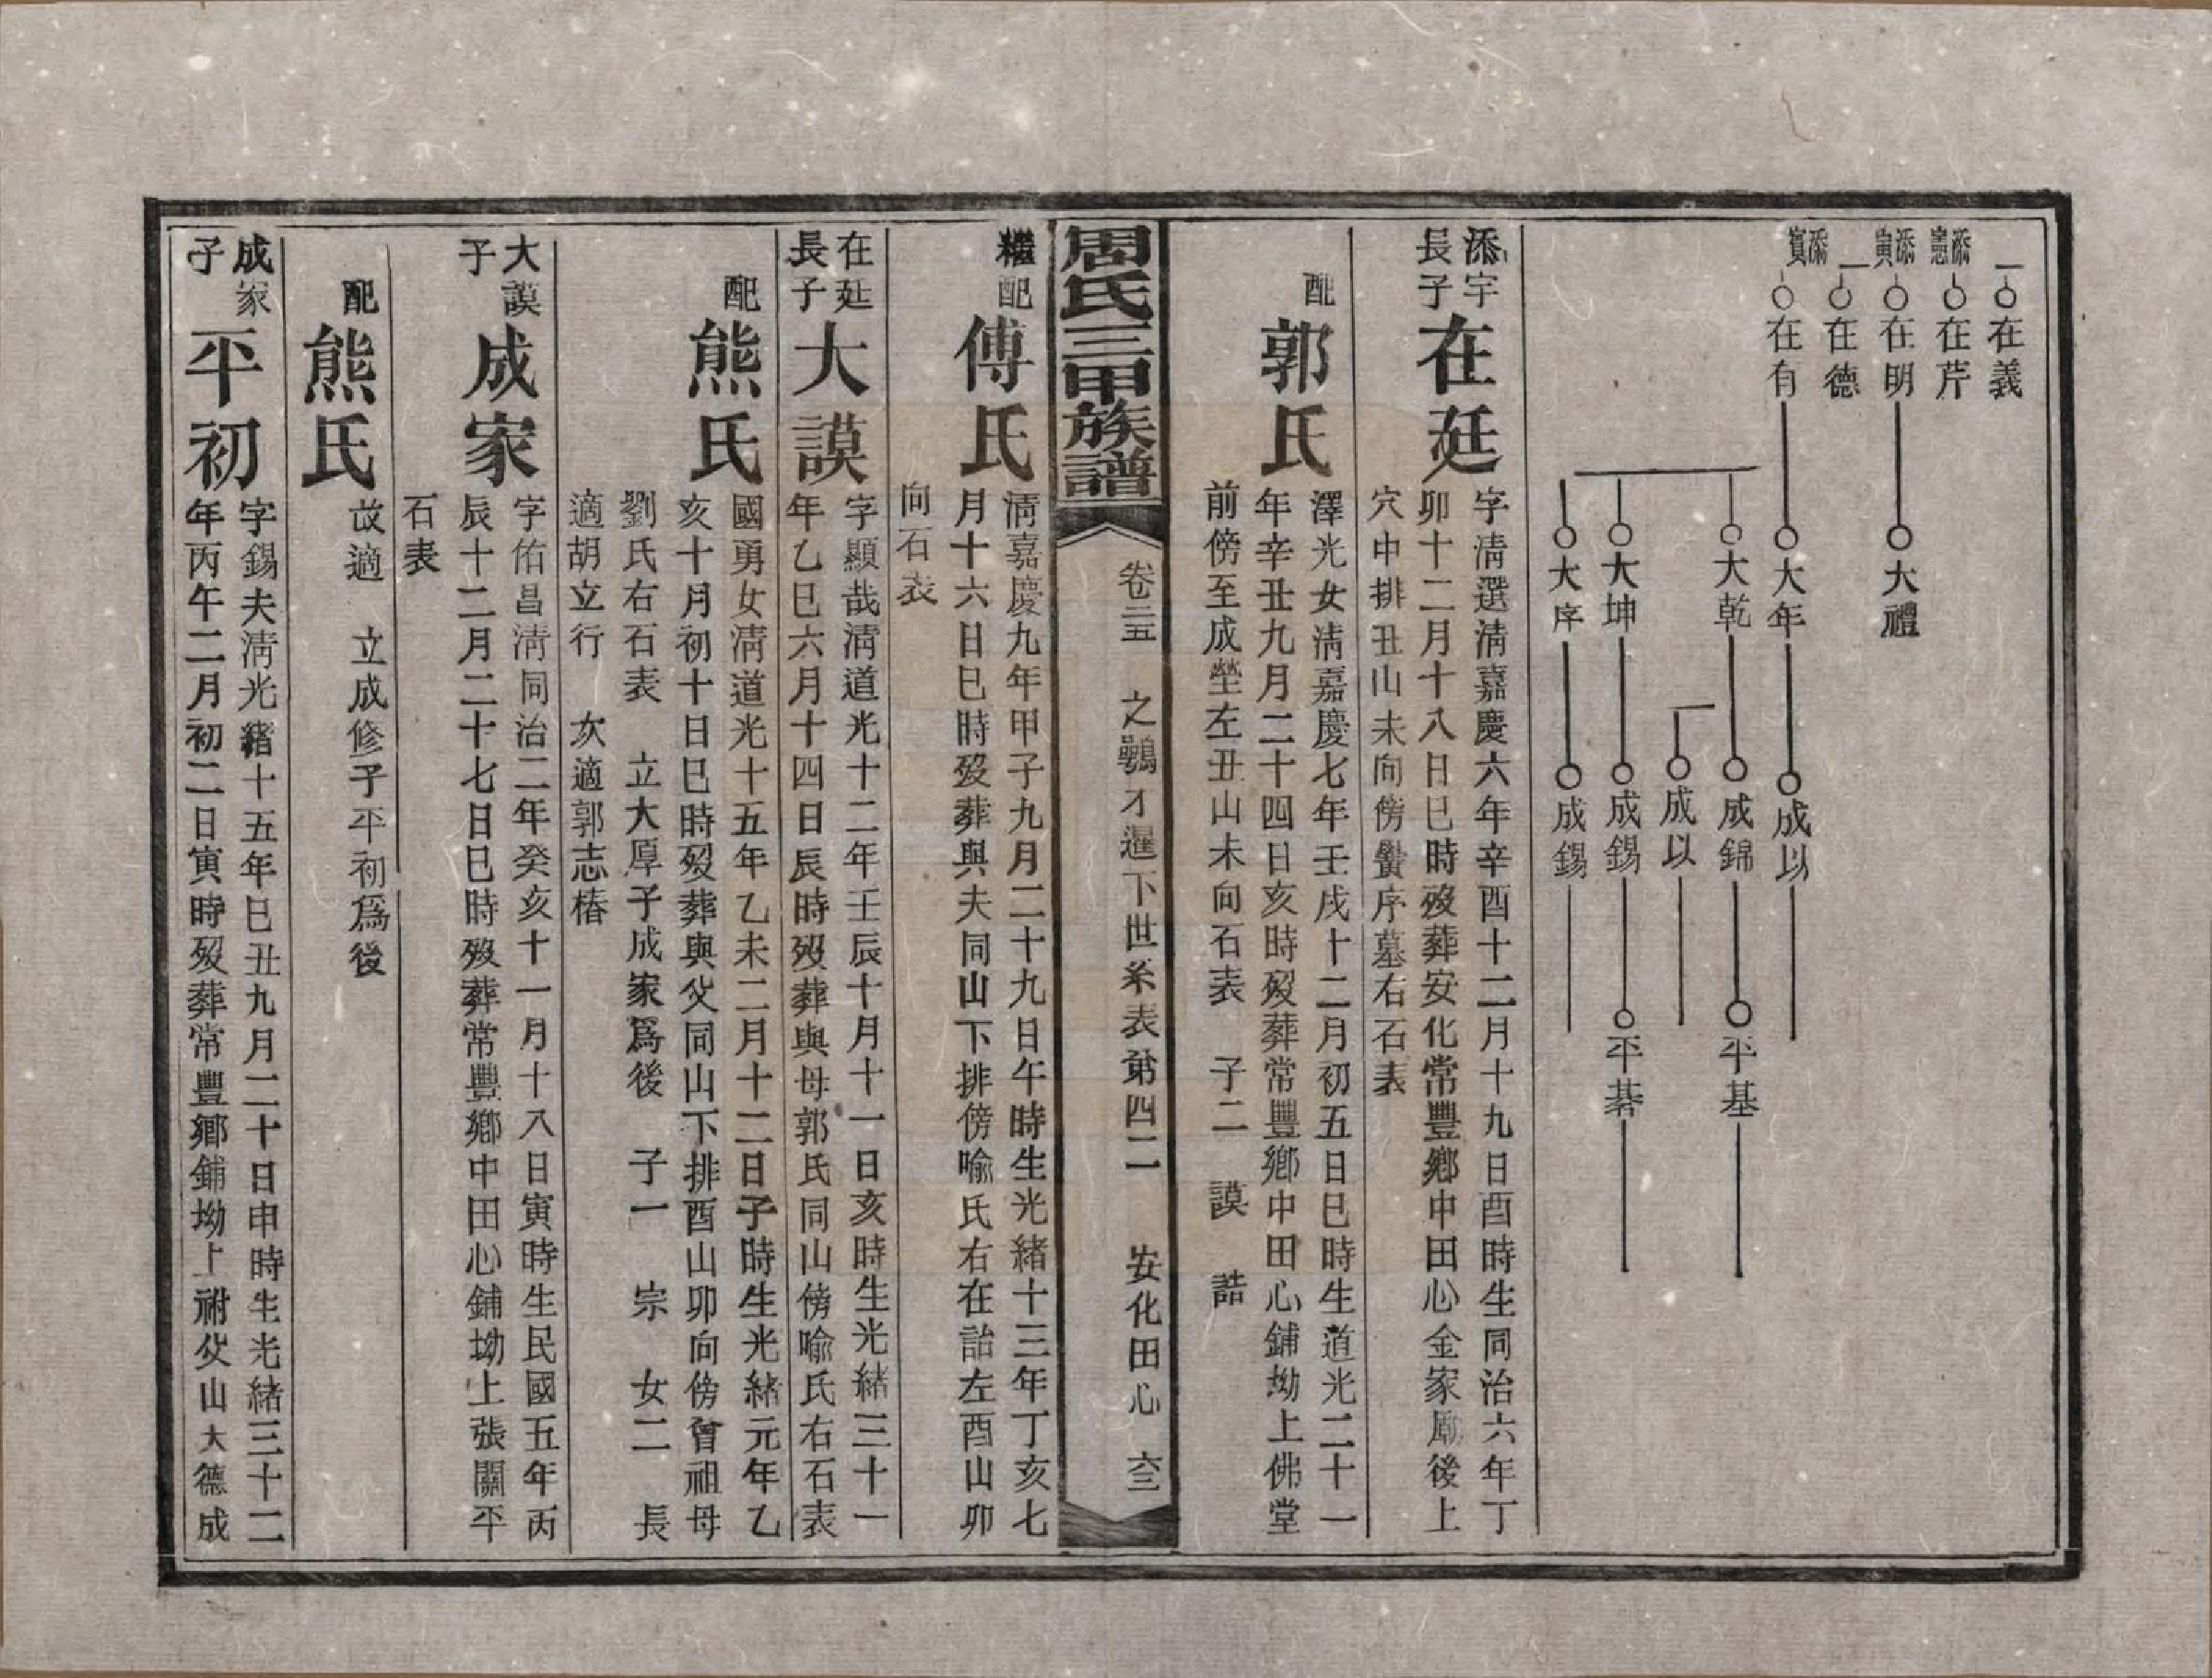 在義
添憲
在芹
添寅
在明
大禮
在德
添賓
在有
大年
成以
大乾
成錦
平基
成以
大坤
成錫
平碁
大序
成錫
添宇
長子
在廷
字淸選淸嘉慶六年辛酉十二月十九日酉時生同治六年丁
卯十二月十八日巳時歿葬安化常豐鄉中田心金家後上
穴中排丑山未向傍黌序墓右石表
配
郭氏
澤光女淸嘉慶七年壬戌十二月初五日巳時生道光二十一
年辛丑九月二十四日亥時歿葬常豐鄉中田心鋪坳上佛堂
前傍至成塋左丑山未向石表 子二 謨 誥
周氏三甲族譜
卷三五 之鶚才暹下世系表第四二 安化田心 六三
繼配
傅氏
淸嘉慶九年甲子九月二十九日午時生光緒十三年丁亥七
月十六日巳時歿葬與夫同山下排傍喩氏右在詒左酉山卯
向石表
在廷
長子
大謨
字顯哉淸道光十二年壬辰十月十一日亥時生光緒三十一
年乙巳六月十四日辰時歿葬與母郭氏同山傍喩氏右石表
配
熊氏
國勇女淸道光十五年乙未二月十二日子時生光緒元年乙
亥十月初十日巳時歿葬與父同山下排酉山卯向傍曾祖母
劉氏右石表 立大厚子成家爲後 子一 宗 女二 長
適胡立行 次適郭志椿
大謨
子
成家
字佑昌淸同治二年癸亥十一月十八日寅時生民國五年丙
辰十二月二十七日巳時歿葬常豐鄉中田心鋪坳上張關平
石表
配
熊氏
故適 立成修子平初爲後
成家
子
平初
字錫夫淸光緒十五年己丑九月二十日申時生光緒三十二
年丙午二月初二日寅時歿葬常豐鄉鋪坳上祔父山大德成